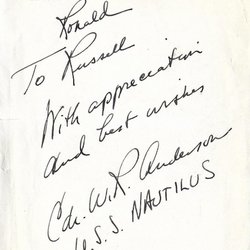 Ronald
To Russell
With appreciation
and best wishes
Cdr. W.R. Anderson
U.S.S. NAUTILUS